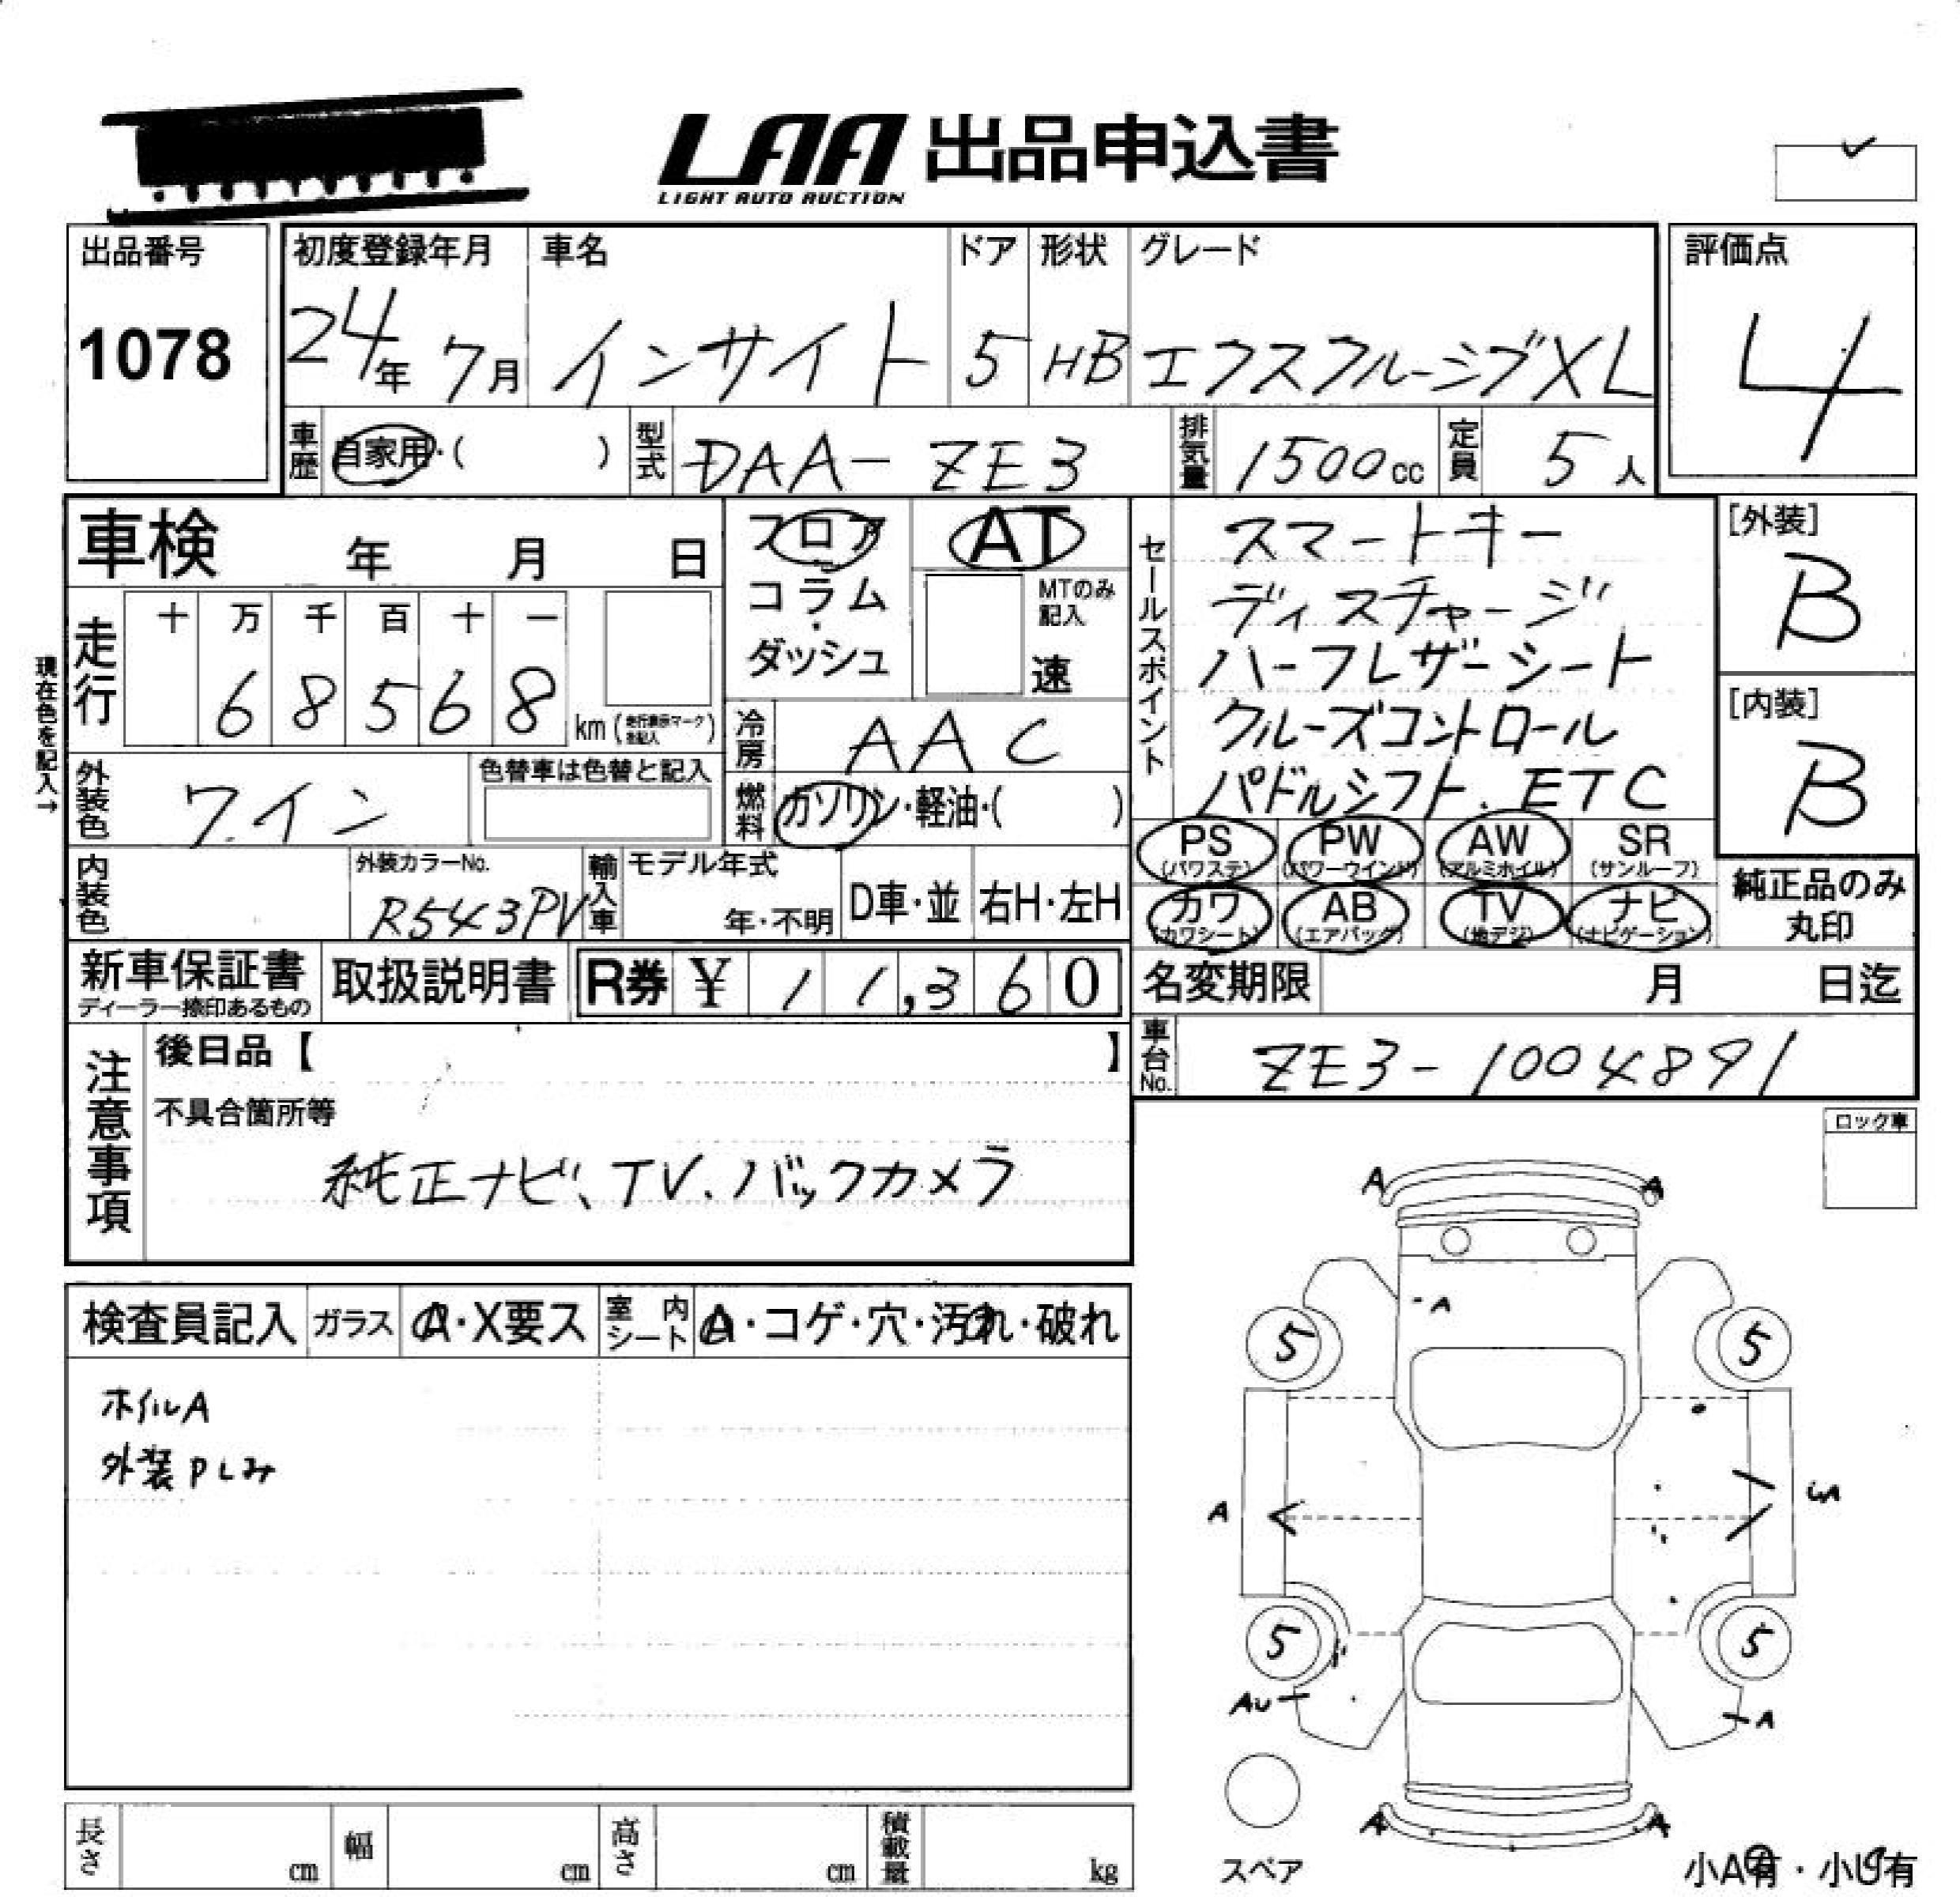 LAA 出品申込書
LIGHT AUTO AUCTION
出品番号
1078
初度登録年月 車名 ドア 形状 グレード
24年 7月 インサイト 5 HB エクスクルーシブXL
評価点
4
車歴 自家用・( ) 型式 DAA-ZE3 排気量 1500cc 定員 5人
車検 年 月 日
フロア
コラム
ダッシュ
AT
MTのみ記入
速
セールスポイント
スマートキー
ディスチャージ
ハーフレザーシート
クルーズコントロール
パドルシフト、ETC
[外装]
B
[内装]
B
現在色を記入→
走行 十 万 千 百 十 一
6 8 5 6 8 km
冷房 AAC
燃料 ガソリン・軽油・( )
外装色 ワイン 色替車は色替と記入
内装色 外装カラーNo. R543PV
輸入車 モデル年式 年・不明 D車・並 右H・左H
PS (パワステ) PW (パワーウインド) AW (アルミホイル) SR (サンルーフ)
カワ (カワシート) AB (エアバッグ) TV (地デジ) ナビ (ナビゲーション)
純正品のみ
丸印
新車保証書
ディーラー捺印あるもの
取扱説明書 R券 ¥ 11,360
名変期限 月 日迄
車台No. ZE3-1004891
注意事項
後日品【 】
不具合箇所等
純正ナビ、TV、バックカメラ
ロック車
検査員記入 ガラス A・X要ス 室内シート A・コゲ・穴・汚れ・破れ
ホイルA
外装PLみ
A A
A
5 5
A
5 5
AU A
A A
スペア
小A有・小U有
長さ cm 幅 cm 高さ cm 積載量 kg